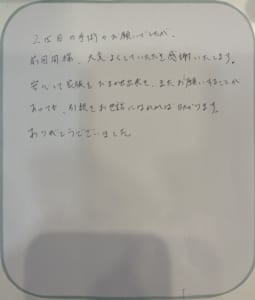 2度目の手術のお願いでしたが、
前回同様、大変よくしていただき感謝いたします。
安心して家族をたまかせ出来て、またお願いすることが
あっても、引続きお世話になれれば助かります。
ありがとうございました。